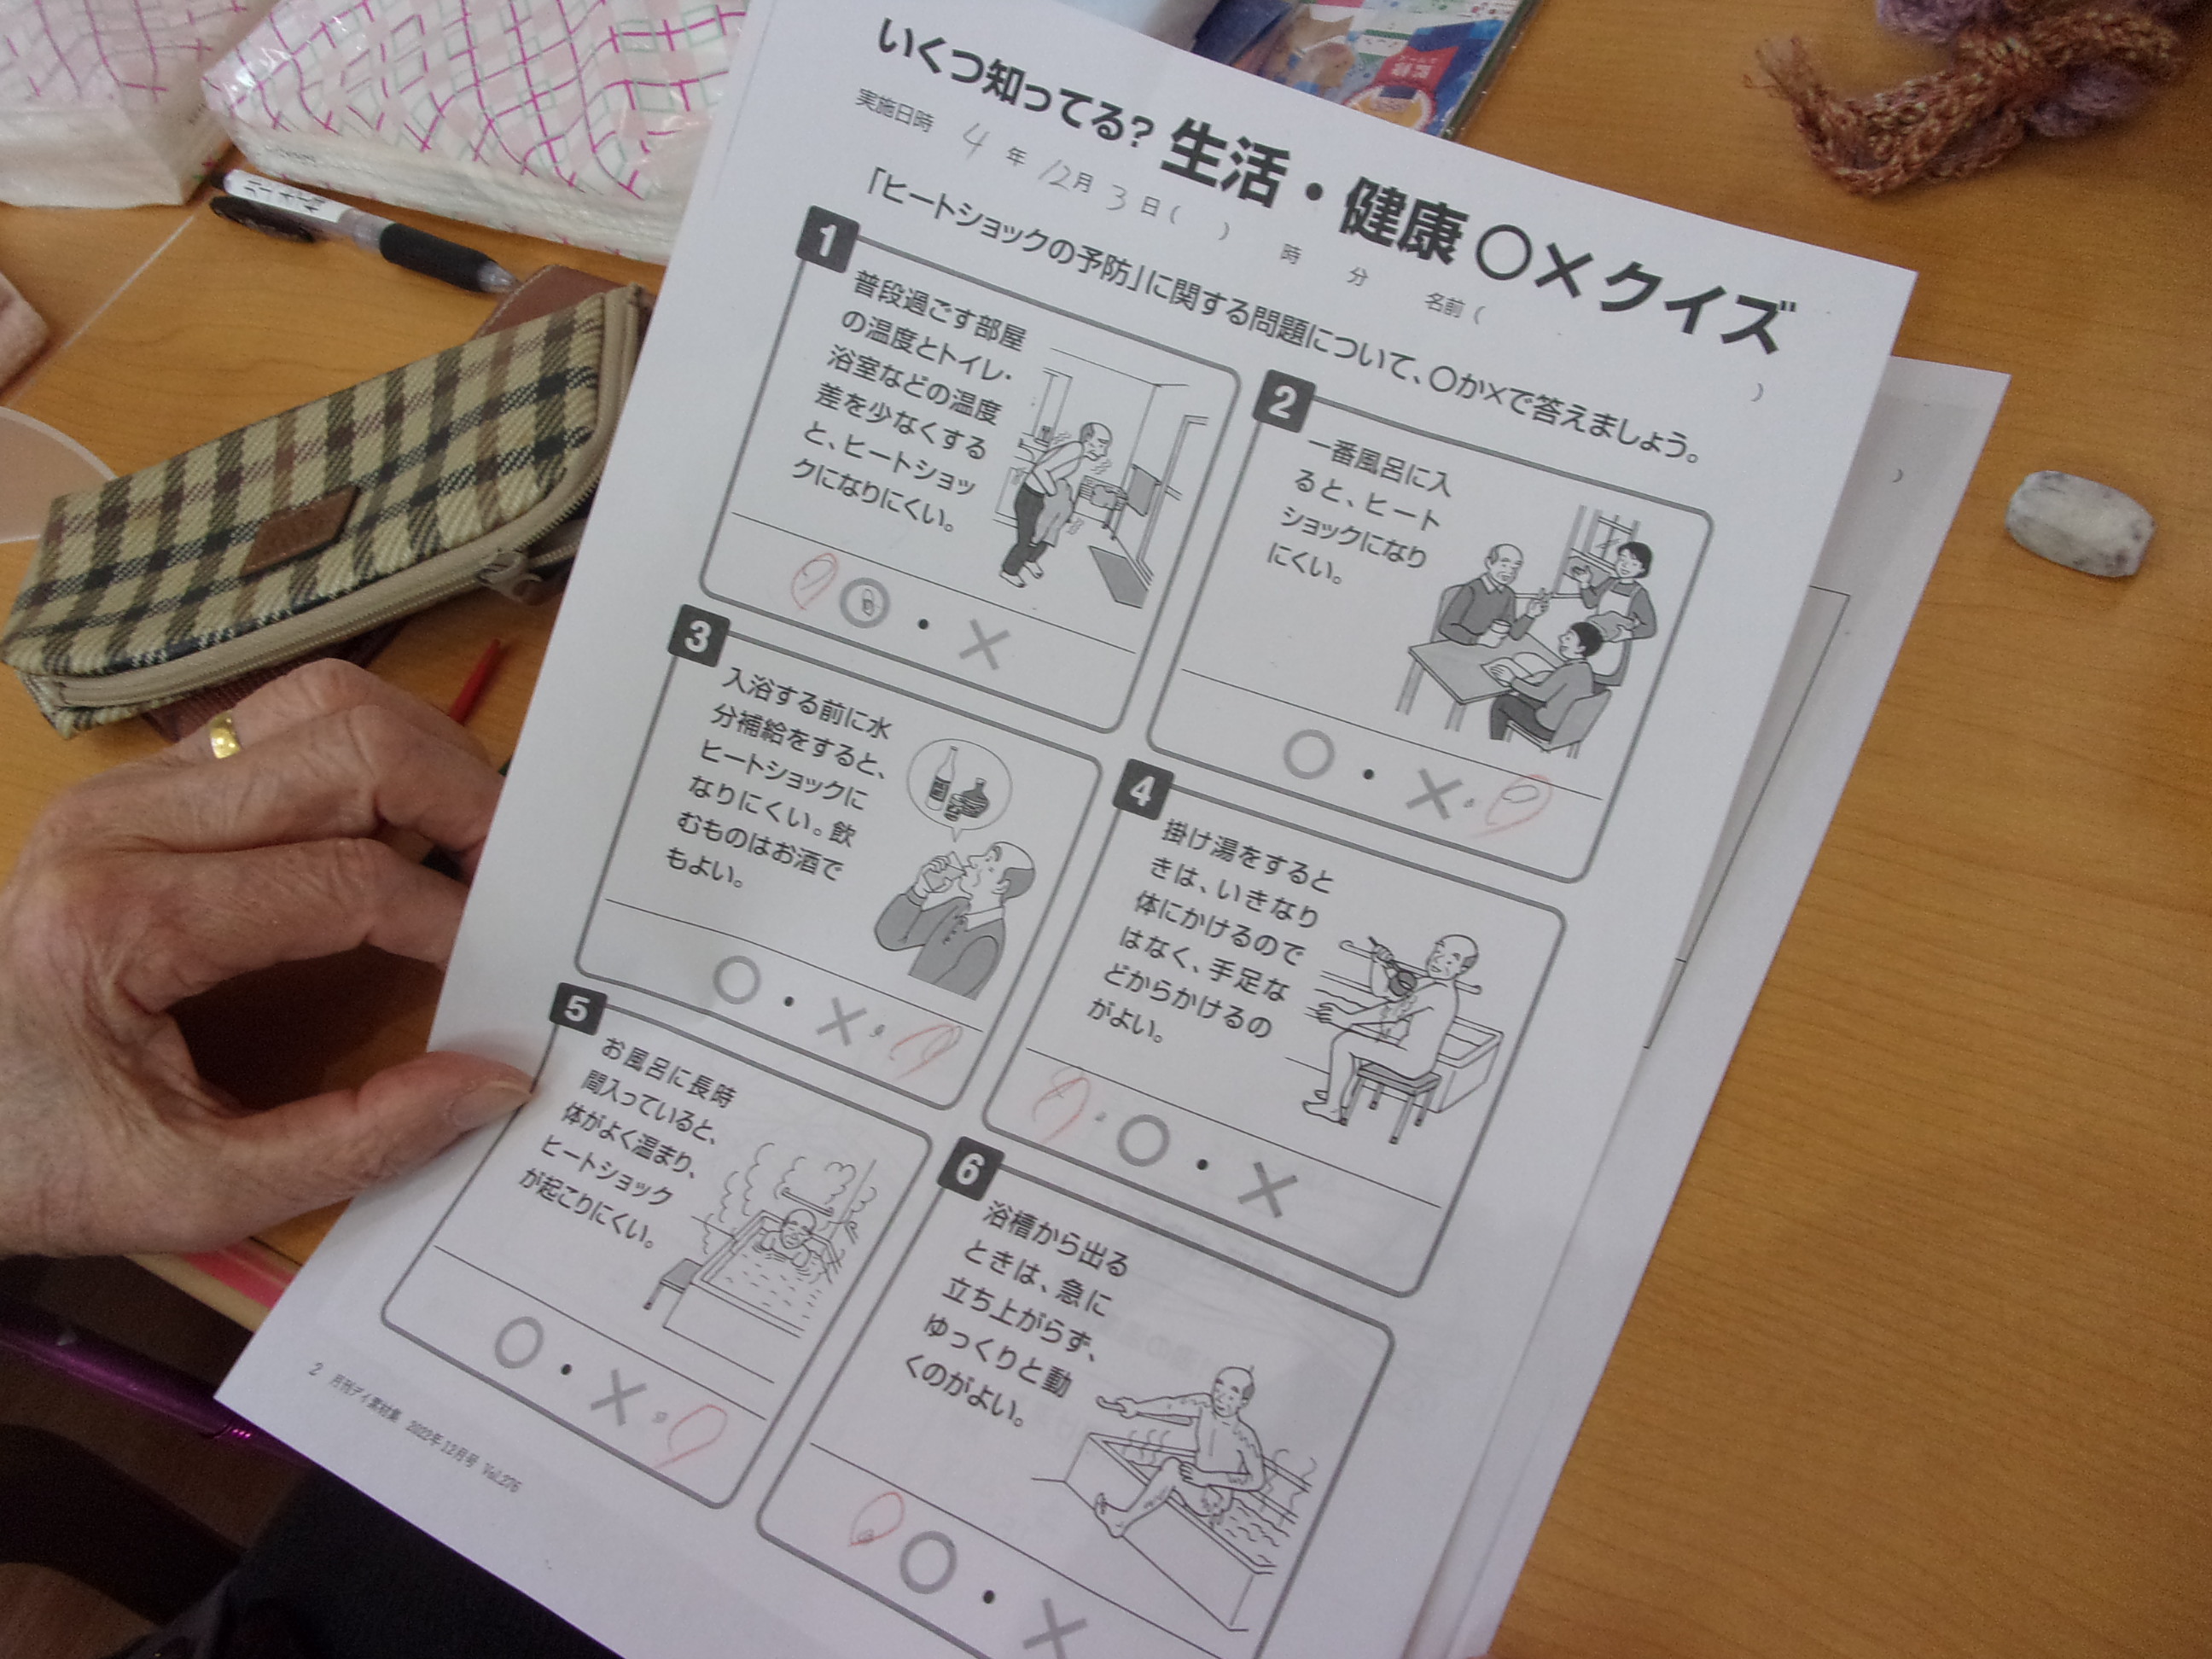 いくつ知ってる? 生活・健康 ○×クイズ
実施日時 4 年 12 月 3 日( ) 時 分 名前( )
「ヒートショックの予防」に関する問題について、○か×で答えましょう。
1
普段過ごす部屋
の温度とトイレ・
浴室などの温度
差を少なくする
と、ヒートショッ
クになりにくい。
○ ・ ×
2
一番風呂に入
ると、ヒート
ショックになり
にくい。
○ ・ ×
3
入浴する前に水
分補給をすると、
ヒートショックに
なりにくい。飲
むものはお酒で
もよい。
○ ・ ×
4
掛け湯をすると
きは、いきなり
体にかけるので
はなく、手足な
どからかけるの
がよい。
○ ・ ×
5
お風呂に長時
間入っていると、
体がよく温まり、
ヒートショック
が起こりにくい。
○ ・ ×
6
浴槽から出る
ときは、急に
立ち上がらず、
ゆっくりと動
くのがよい。
○ ・ ×
2 月刊デイ素材集 2022年12月号 Vol.276